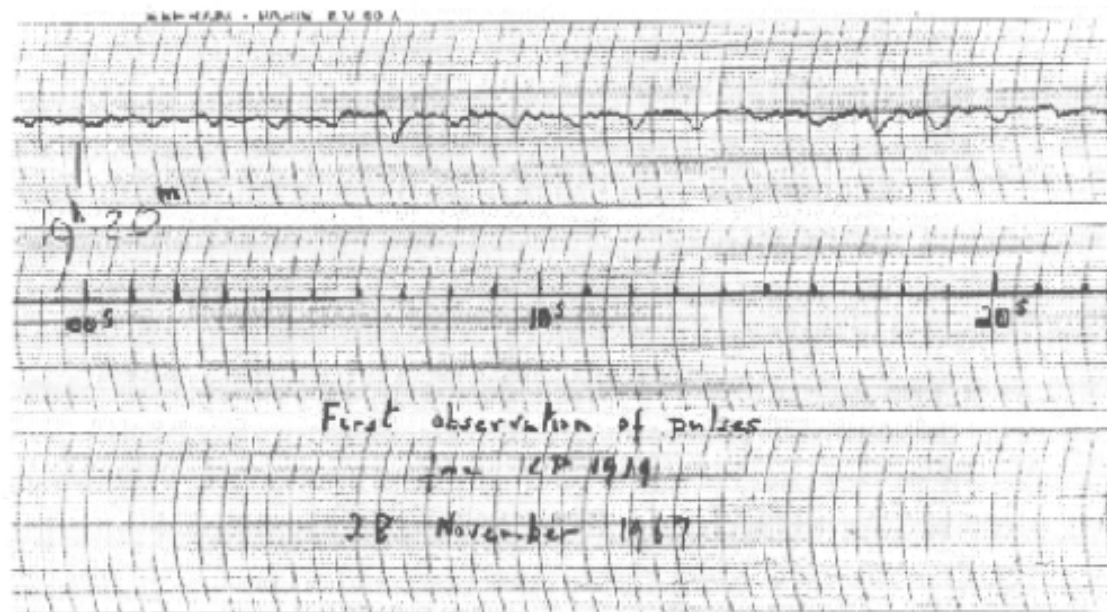 19ʰ 20ᵐ
00ˢ 10ˢ 20ˢ
First observation of pulses
CP 1919
28 November 1967